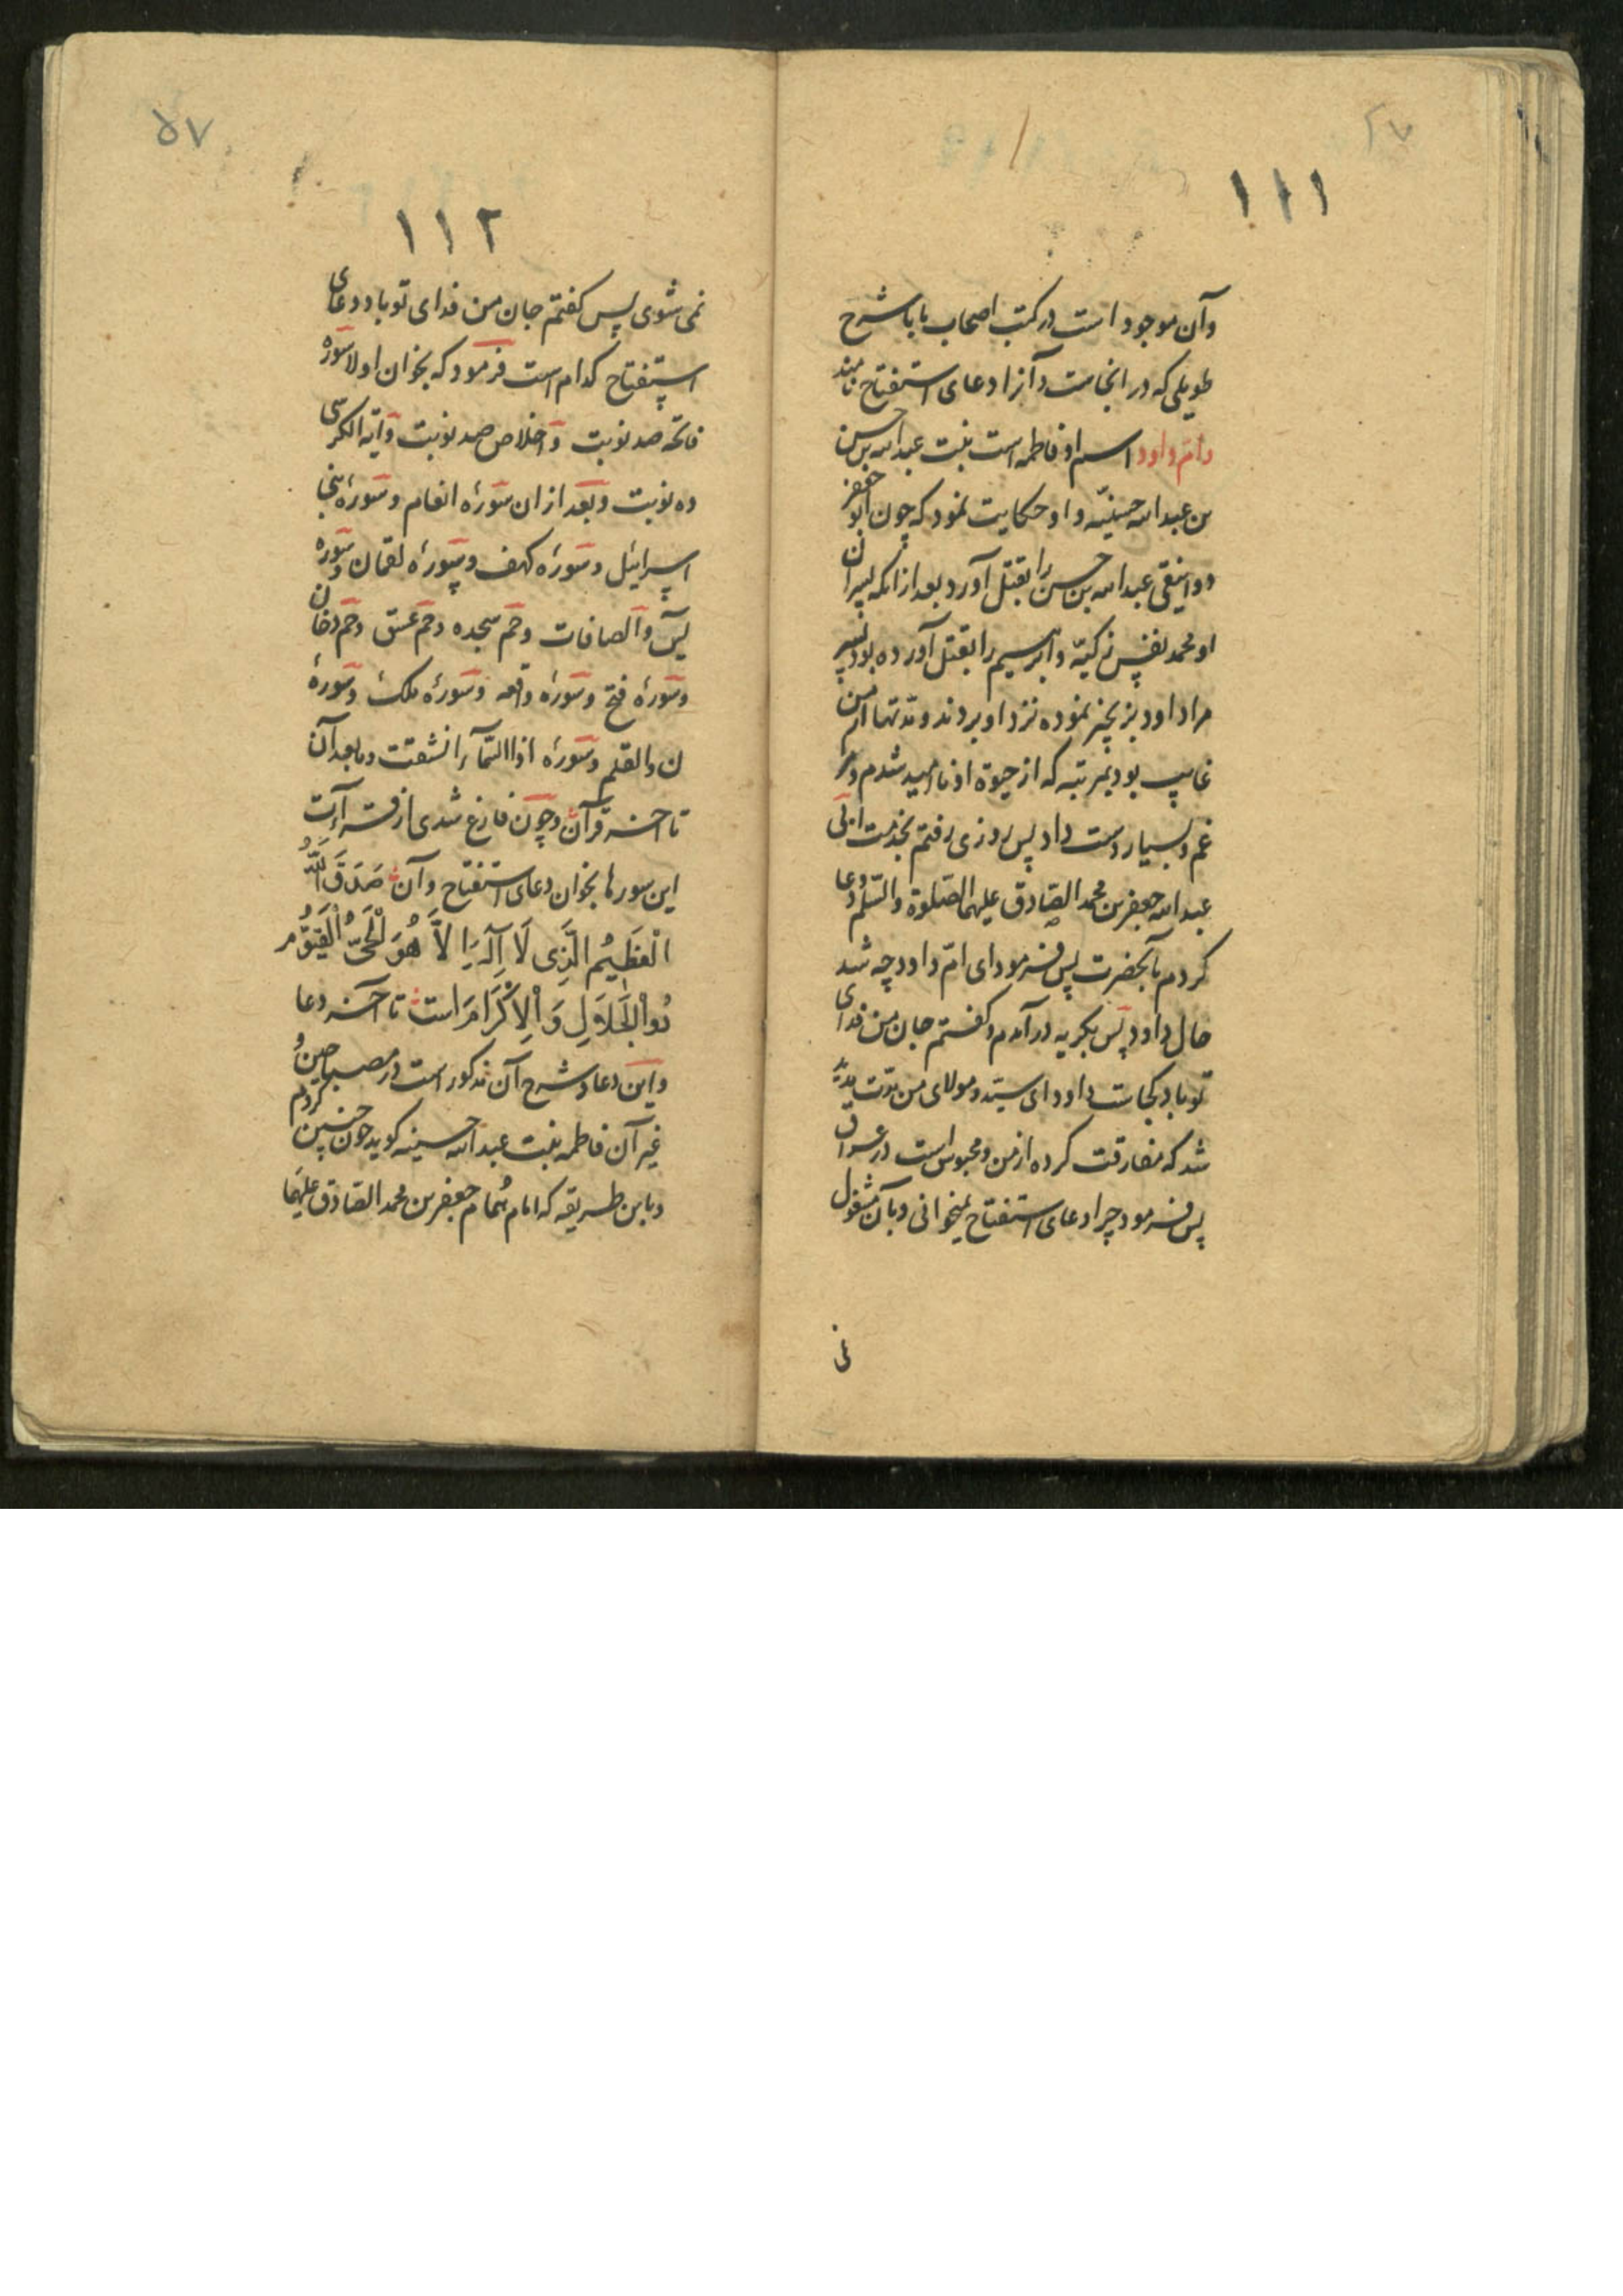 ۱۱۱
وآن موجود است در کتب اصحاب ما با شرح
طویلی که در انجاست و آنرا دعای استفتاح نامند
وام داود اسم او فاطمه است بنت عبدالله بن حسن
بن عبدالله حسینیّه و او حکایت نمود که چون ابو جعفر
دوانیقی عبدالله بن حسن را بقتل آورد بعد از انکه پسران
او محمد نفس زکیّه و ابرهیم را بقتل آورده بود پسر
مرا داود بزنجیر نموده نزد او بردند و مدتها از من
غایب بود بمرتبه که از حیوة او ناامید شدم و مرا
غم بسیار دست داد پس روزی رفتم بخدمت ابی
عبدالله جعفر بن محمد الصادق علیهما الصلوة والسلم و دعا
کردم بآنحضرت پس فرمود ای امّ داود چه شد
حال داود پس بگریه در آمدم و گفتم جان من فدای
تو باد کجاست داود ای سید و مولای من مدت مدید
شد که مفارقت کرده از من و محبوس است در عراق
پس فرمود چرا دعای استفتاح نمیخوانی و بآن مشغول
نمی
۵۷
۱۱۲
نمی شوی پس کفتم جان من فدای تو باد دعای
استفتاح کدام است فرمود که بخوان اولا سوره
فاتحه صد نوبت و اخلاص صد نوبت و آیه الکرسی
ده نوبت و بعد از ان سورهٔ انعام و سورهٔ بنی
اسرائیل و سورهٔ کهف و سورهٔ لقمان و سوره
یس و الصافات و حم سجده و حم عسق و حم دخان
و سورهٔ فتح و سورهٔ واقعه و سورهٔ ملک و سورهٔ
ن والقلم و سورهٔ اذا السّمآء انشقت و ما بعد آن
تا آخر قرآن و چون فارغ شدی از قرآءت
این سورها بخوان دعای استفتاح و آن صَدَقَ اللهُ
الْعَظِیمُ الَّذِی لَا آِلَهَ اِلاَّ هُوَ الْحَیُّ الْقَیُّوْمُ
ذُوالْجَلَالِ وَالْاِکْرَامِ است تا آخر دعا
و این دعا و شرح آن مذکور است در مصباحین و
غیر آن فاطمه بنت عبدالله حسینیه کوید چون چنین کردم
و باین طریقه که امام هُمام جعفر بن محمد الصادق علیهما